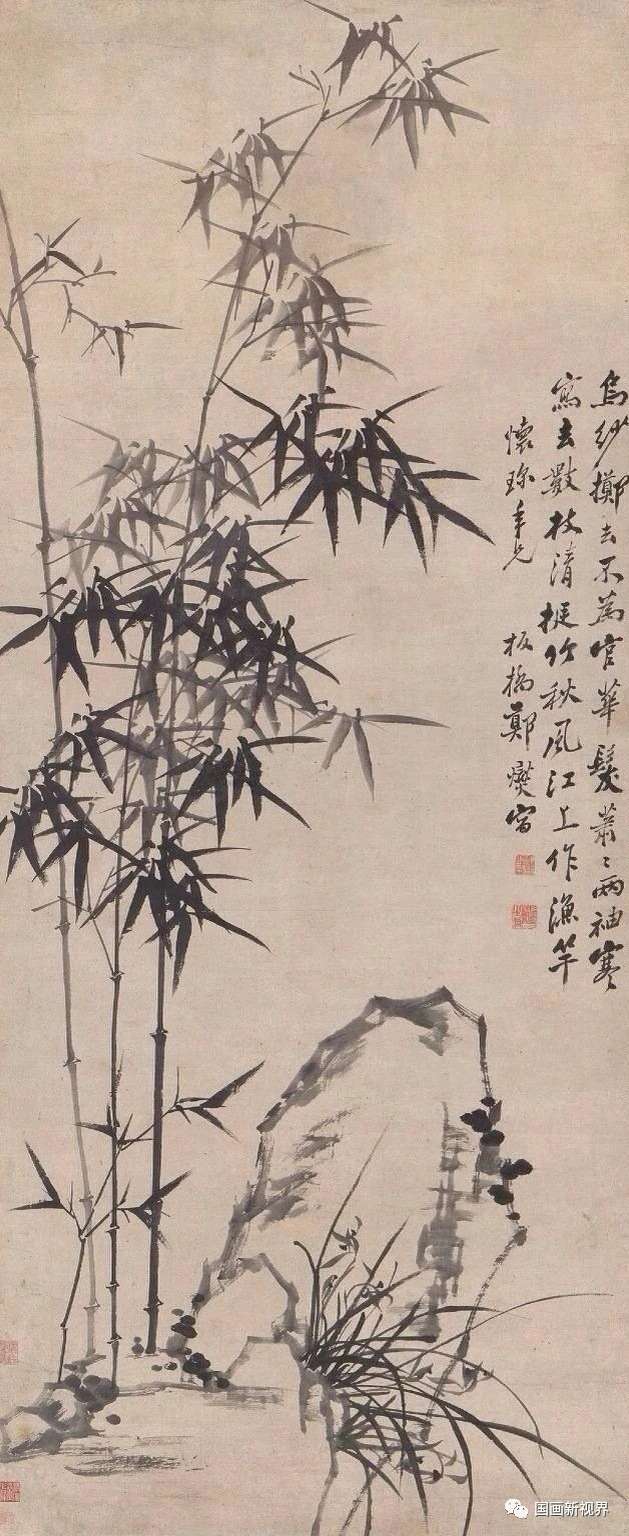 烏紗擲去不為官華髮蕭〻兩袖寒
寫去數枝清挺竹秋風江上作漁竿
懷珎年兄 板橋鄭燮寫
国画新视界